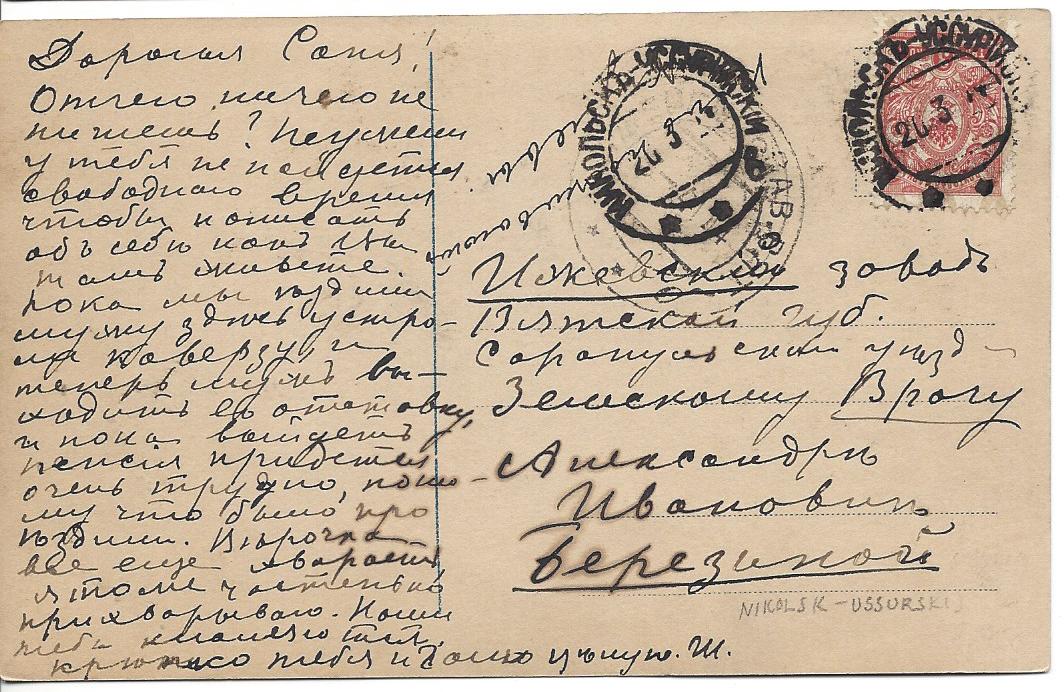 Дорогая Соня!
Отчего ничего не
пишешь? Неужели
у тебя не найдется
свободнаго времени
чтобы написать
объ себѣ какъ Вы
тамъ живете.
пока мы ѣздили
мужу здѣсь устро-
или каверзу, и
теперь мужъ вы-
ходитъ въ отставку,
и пока выйдетъ
пенсія придется
очень трудно, пото-
му что было, про
ѣздили. Вѣрочка
все еще хвораетъ
я тоже частенько
прихварываю. Наши
тебѣ кланяются.
крѣпко тебя и цѣлую. Ш.
НИКОЛЬСКЪ-УССУРІЙСКІЙ
26 3
НИКОЛЬСКЪ-УССУРІЙСК
26 3
ЗАВ.
Ижевскій заводъ
Вятской губ.
Сарапульскій уѣзд
Земскому Врачу
Александрѣ
Ивановнѣ
Березиной
NIKOLSK-USSURSKIJ